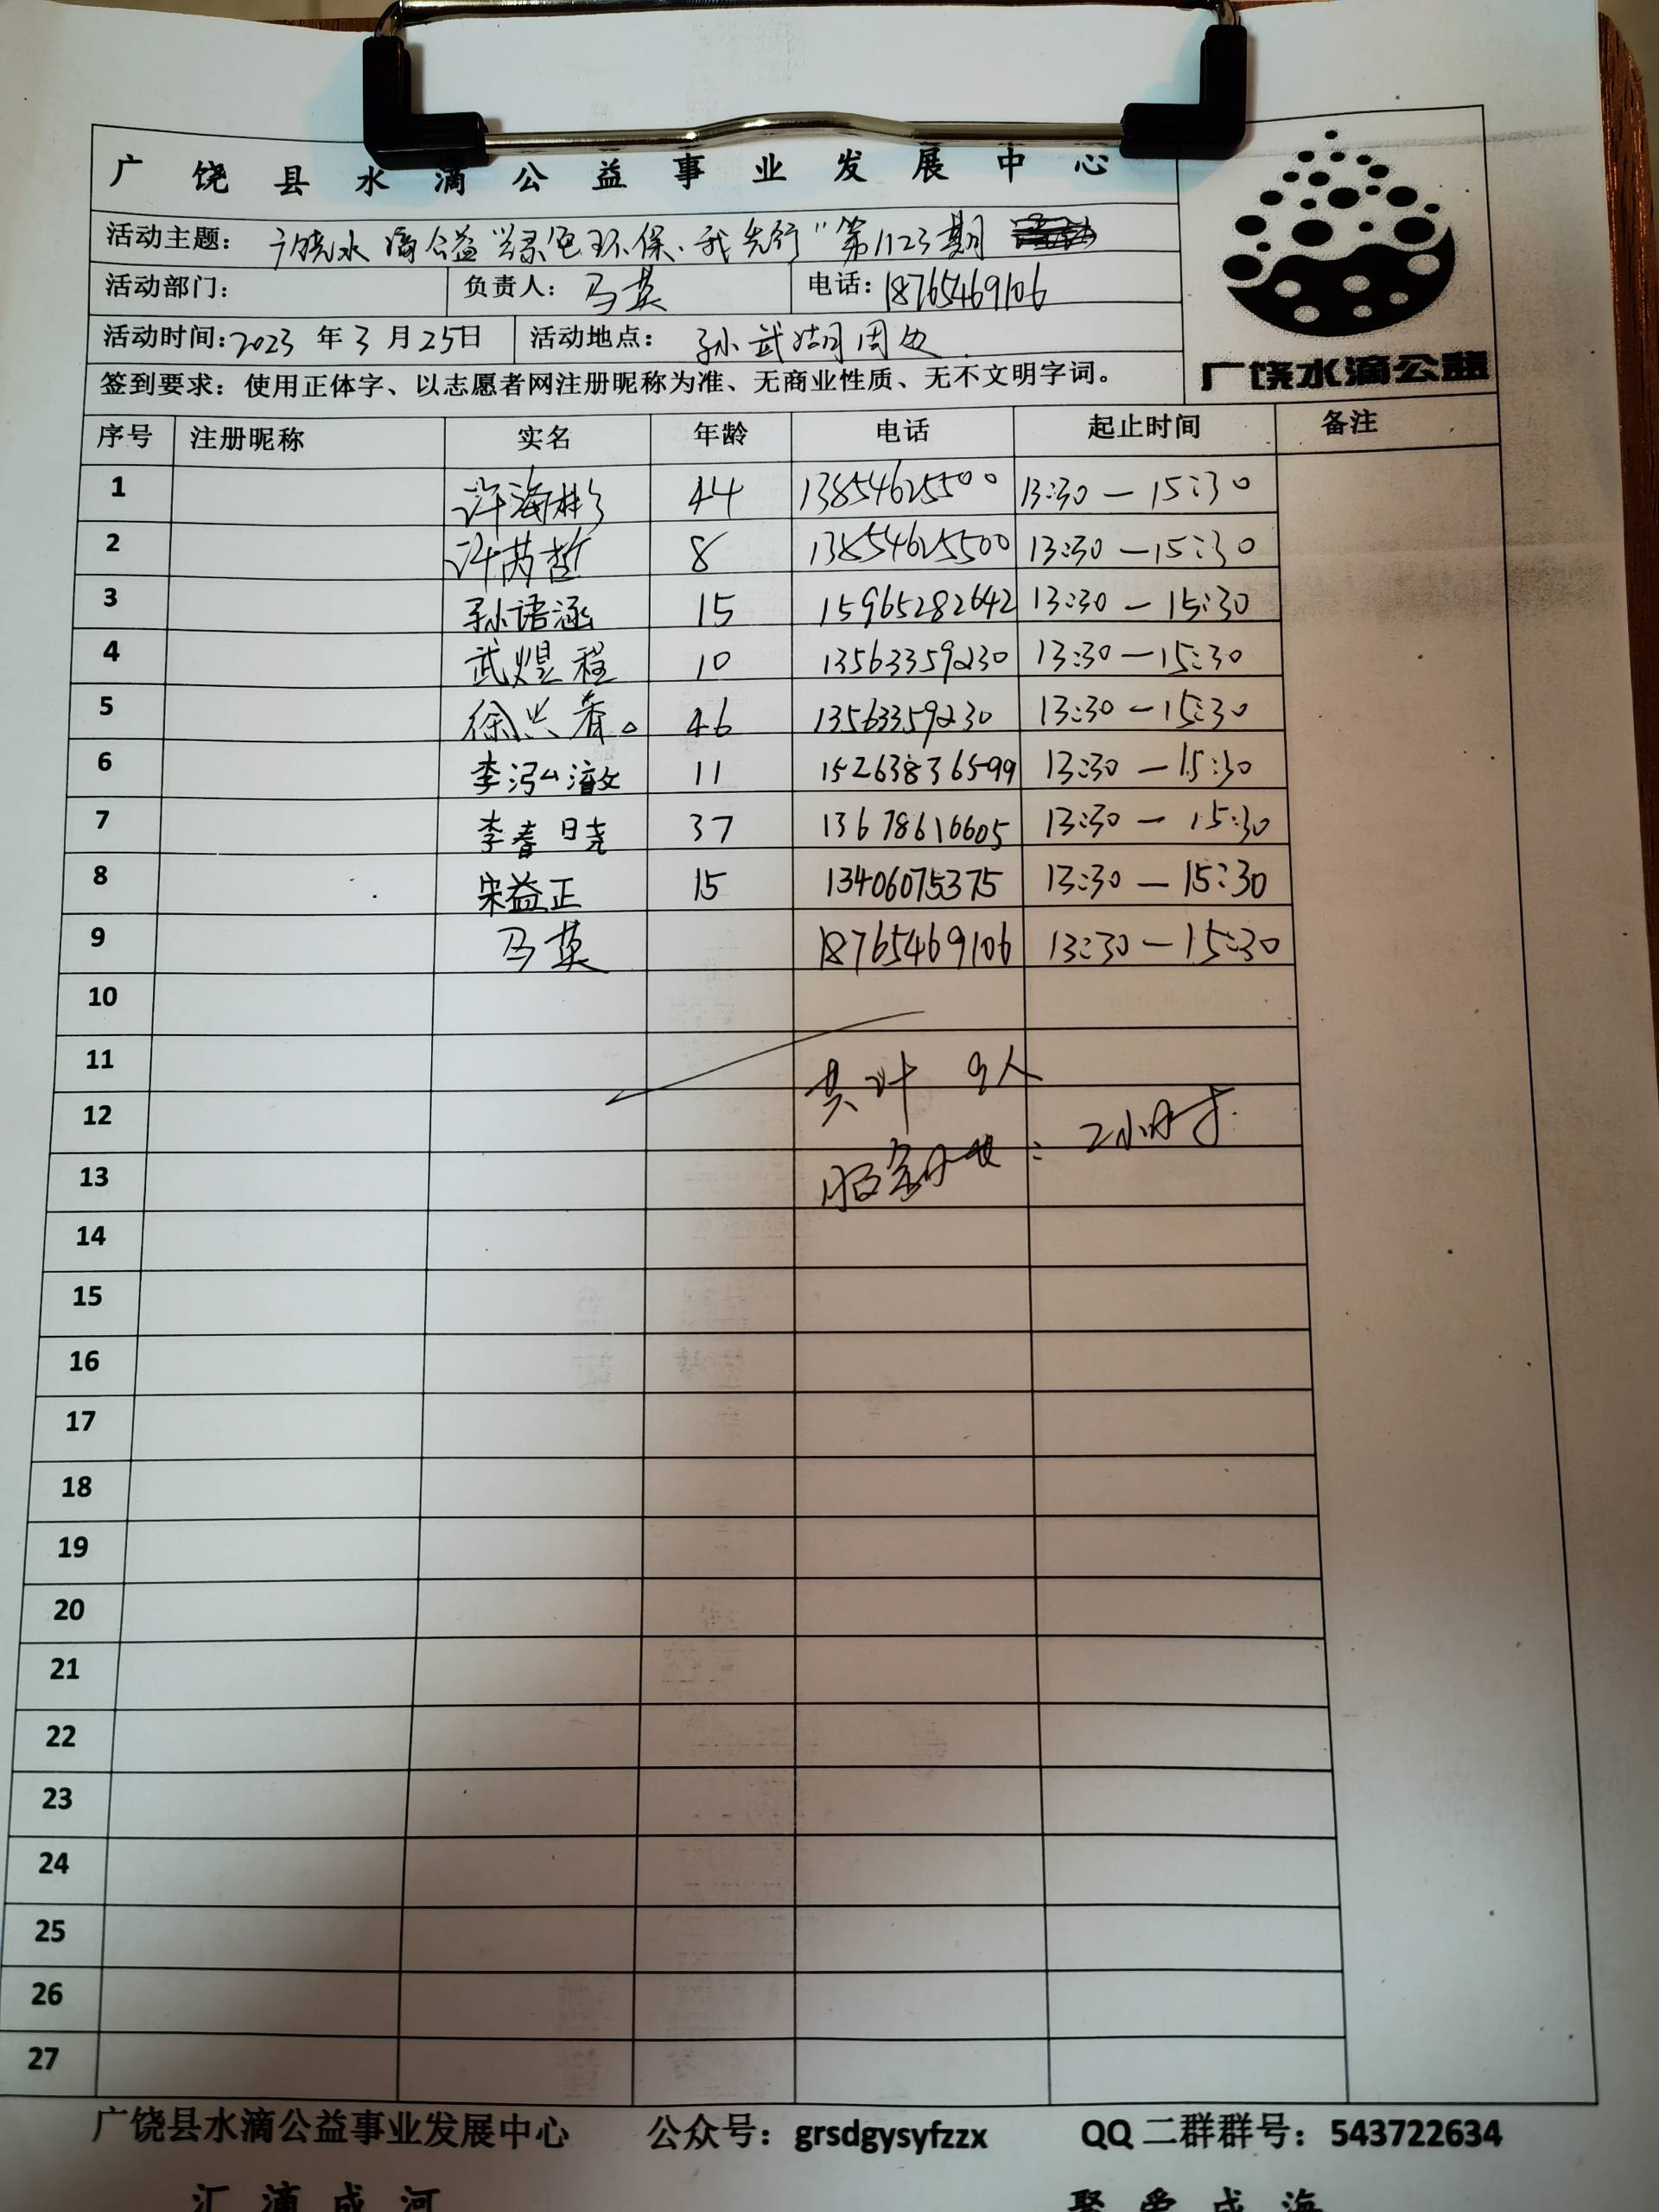 广饶县水滴公益事业发展中心
活动主题：广饶水滴公益“绿色环保.我先行”第1123期
活动部门： 负责人：马英 电话：18765469106
活动时间：2023年3月25日 活动地点：孙武湖周边
签到要求：使用正体字、以志愿者网注册昵称为准、无商业性质、无不文明字词。
广饶水滴公益
序号 注册昵称 实名 年龄 电话 起止时间 备注
1 许海彬 44 13854625500 13:30—15:30
2 许芮哲 8 13854625500 13:30—15:30
3 孙语涵 15 15965282642 13:30—15:30
4 武煜程 10 13563359230 13:30—15:30
5 徐兴香。 46 13563359230 13:30—15:30
6 李泓澂 11 15263836599 13:30—15:30
7 李春晓 37 13678616605 13:30—15:30
8 宋益正 15 13406075375 13:30—15:30
9 马英 18765469106 13:30—15:30
10
11 共计 9人
12 2小时.
13 服务时长：
14
15
16
17
18
19
20
21
22
23
24
25
26
27
广饶县水滴公益事业发展中心 公众号：grsdgysyfzzx QQ二群群号：543722634
汇滴成河 聚爱成海